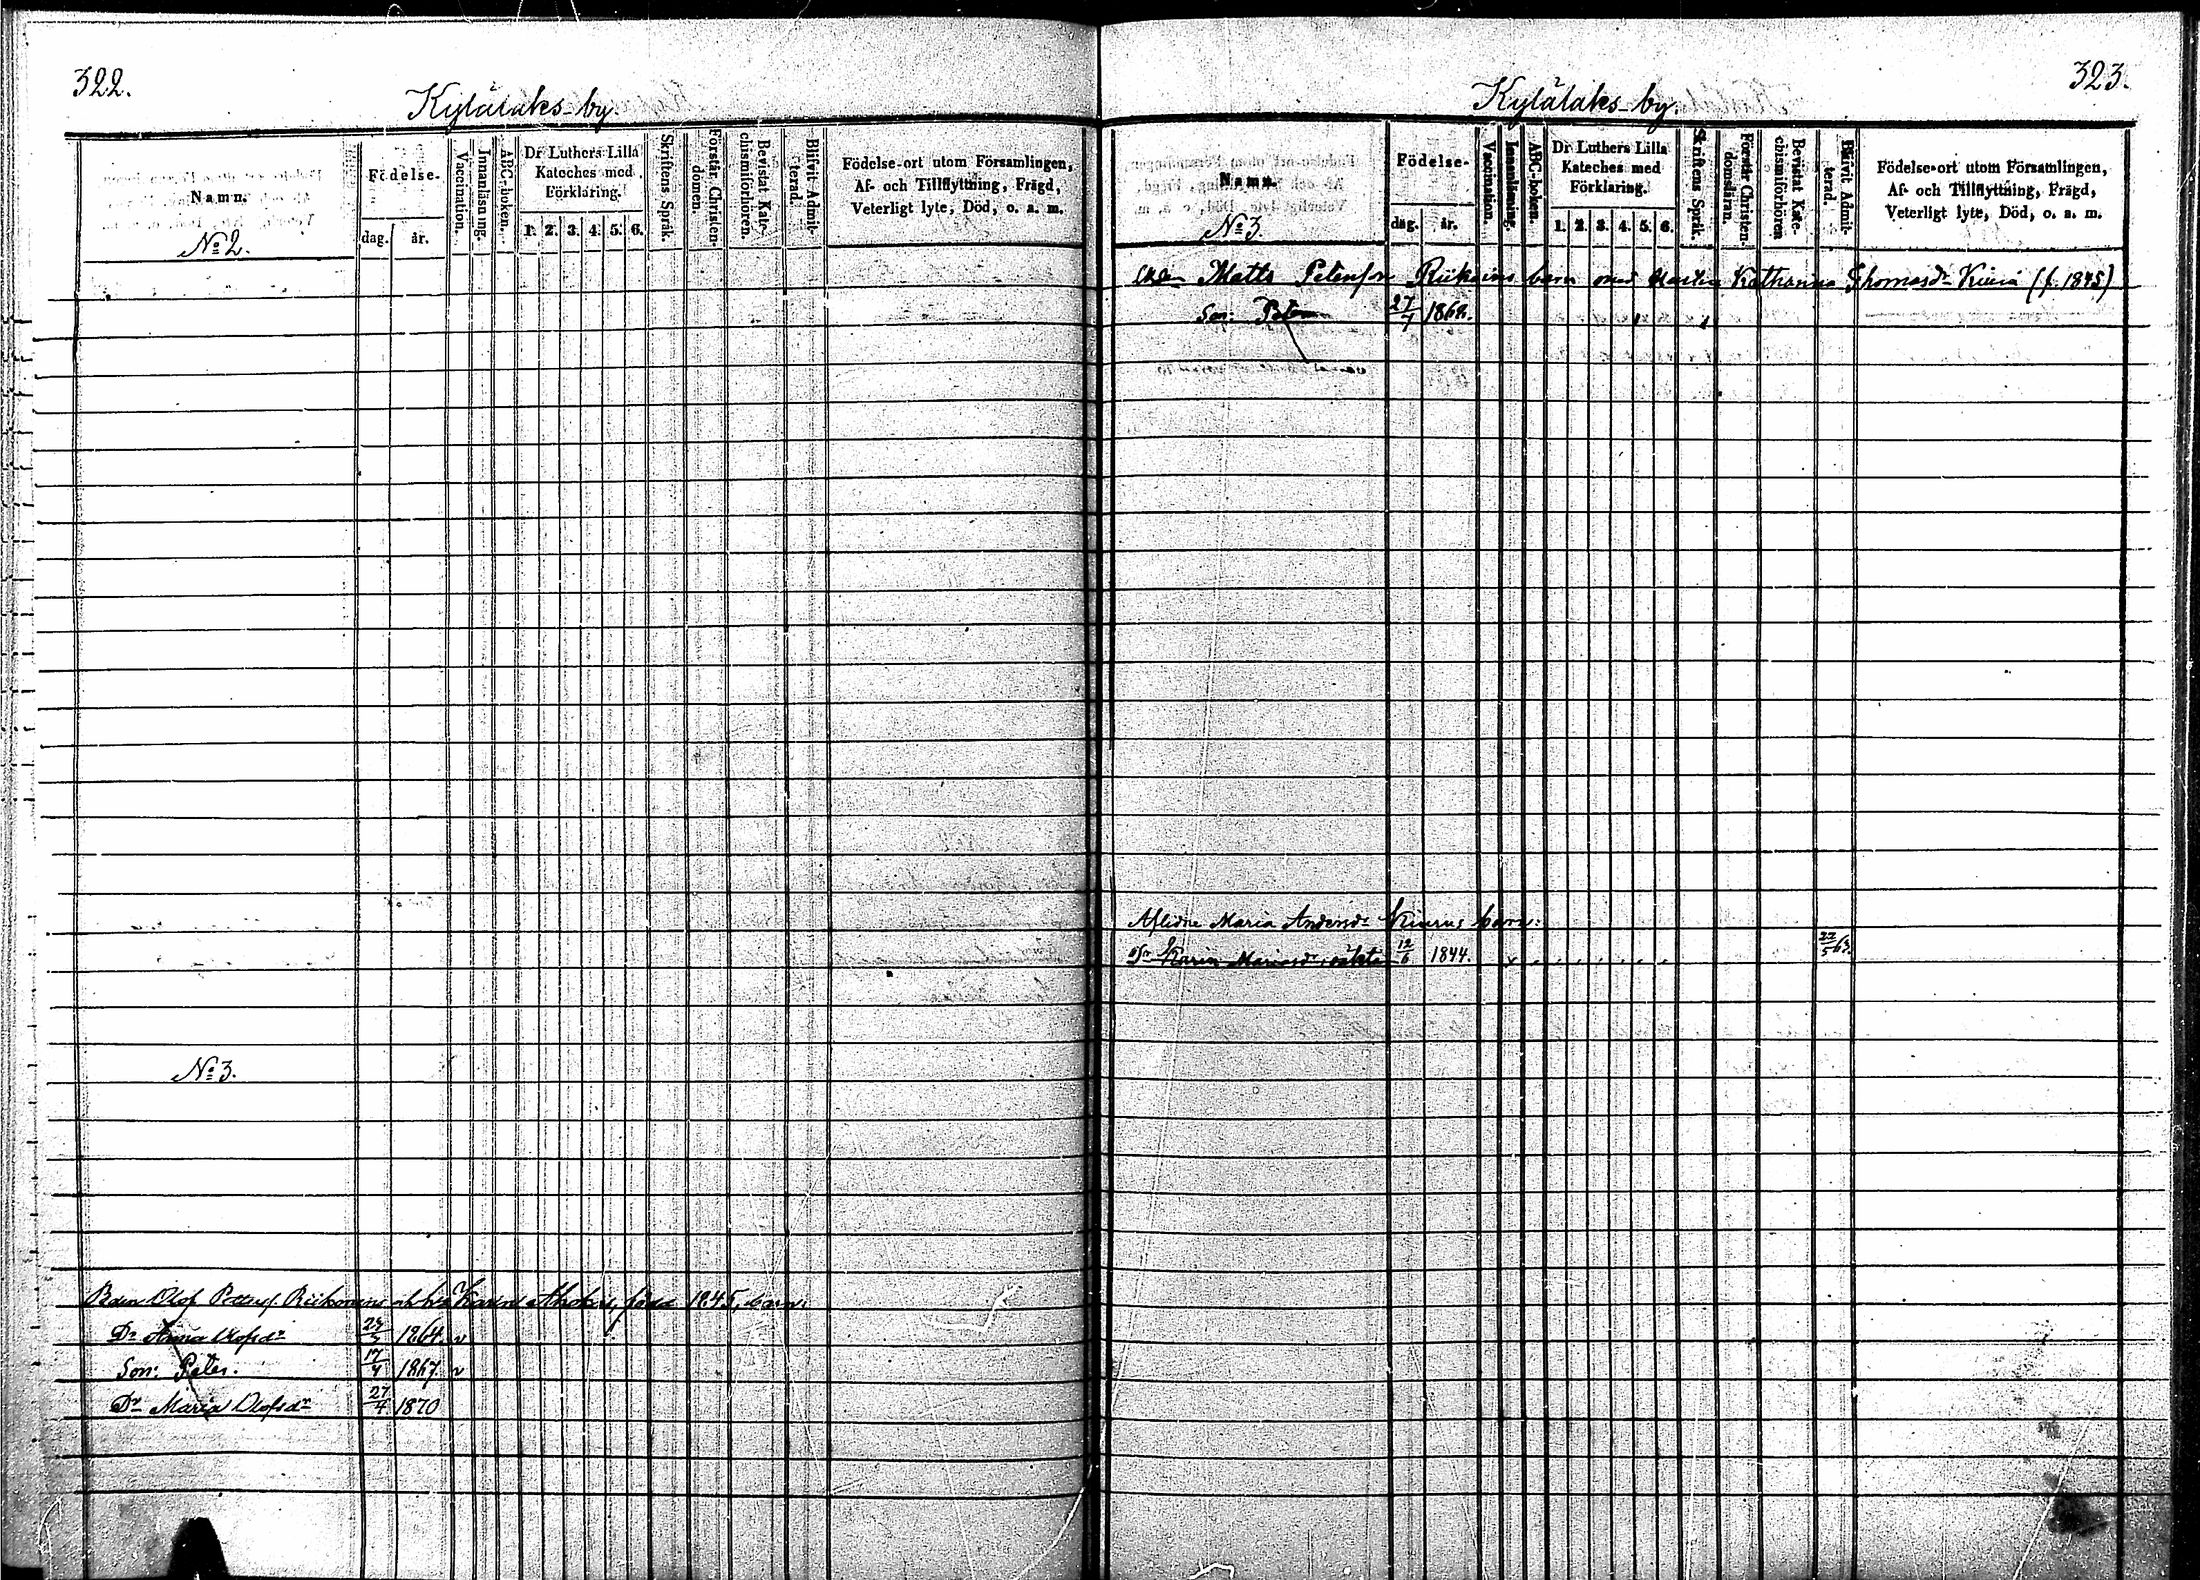 322.
Kylälaks-by.
Namn.
Födelse-
dag.
år.
Vaccination.
Innanläsning.
ABC-boken.
Dr Luthers Lilla
Kateches med
Förklaring.
1. 2. 3. 4. 5. 6.
Skriftens Språk.
Förstår Christen-
domen.
Bevistat Kate-
chismiförhören.
Blifvit Admit-
terad.
Födelse-ort utom Församlingen,
Af- och Tillflyttning, Frägd,
Veterligt lyte, Död, o. a. m.
No 2.
No 3.
Olof Karin född 1845, barn:
Dr Anna Olofsdr 1864. v
Son: Peter. 17/4 1867. v
Dr Maria Olofsdr 27/4 1870
323.
Kylälaks-by.
Namn.
Födelse-
dag.
år.
Vaccination.
Innanläsning.
ABC-boken.
Dr Luthers Lilla
Kateches med
Förklaring.
1. 2. 3. 4. 5. 6.
Skriftens Språk.
Förstår Christen-
domsläran.
Bevistat Kate-
chismiförhören
Blifvit Admit-
terad.
Födelse-ort utom Församlingen,
Af- och Tillflyttning, Frägd,
Veterligt lyte, Död, o. a. m.
No 3.
Matts Petersson barn med Katharina Thomasdr (f. 1845)
Son: Peter 27/7 1868.
Aflidne Maria Andersdr Kiurus barn:
Dr Karin Mariasdr, oäkta 12/6 1844. x 22/5 63.